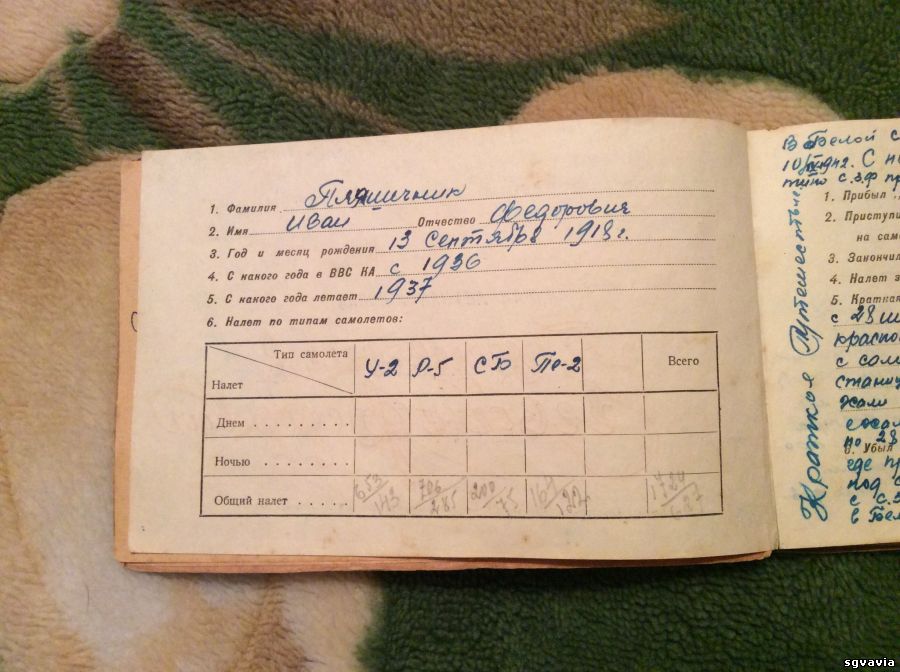 1. Фамилия Пляшичник
2. Имя Иван Отчество Федорович
3. Год и месяц рождения 13 Сентября 1918 г.
4. С какого года в ВВС КА с 1936
5. С какого года летает 1937
6. Налет по типам самолетов:
Тип самолета У-2 Р-5 СБ Пе-2 Всего
Налет
Днем . . . . . . . . .
Ночью . . . . . . .
Общий налет . . . . . 653/143 706/285 200/75
Краткое Путешествие
В Белой с
1. Прибыл
2. Приступи
на само
3. Закончил
4. Налет з
5. Краткая
с 28
красно
с сам
станиц
по 28
6. Убыл
где пр
под
с с.з
в Бел
sgvavia